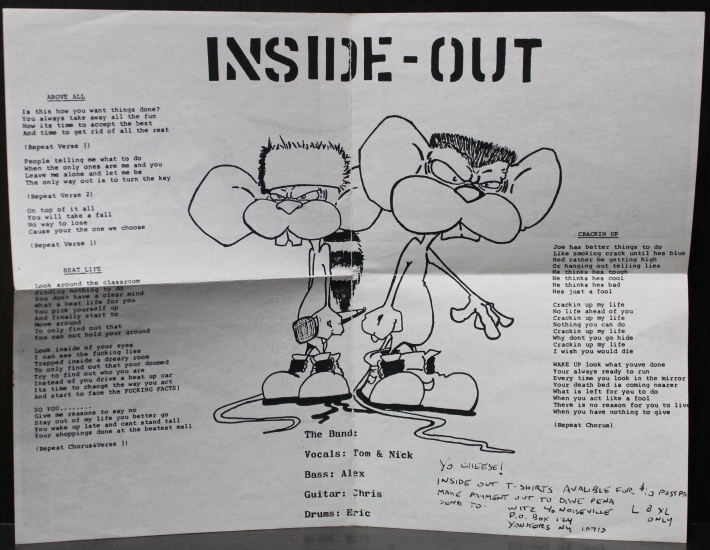 INSIDE-OUT
ABOVE ALL
Is this how you want things done?
You always take away all the fun
Now its time to accept the best
And time to get rid of all the rest
(Repeat Verse 1)
People telling me what to do
When the only ones are me and you
Leave me alone and let me be
The only way out is to turn the key
(Repeat Verse 2)
On top of it all
You will take a fall
No way to lose
Cause your the one we choose
(Repeat Verse 1)
BEAT LIFE
Look around the classroom
Finding nothing to do
You dont have a clear mind
What a beat life for you
You pick yourself up
And finally start to
Move around
To only find out that
You can not hold your ground
Look inside of your eyes
I can see the fucking lies
Trapped inside a dreary room
To only find out that your doomed
Try to find out who you are
Instead of you drive a beat up car
Its time to change the way you act
And start to face the FUCKING FACTS!
SO YOU........
Give me reasons to say no
Stay out of my life you better go
You wake up late and cant stand tall
Your shoppings done at the beatest mall
(Repeat Chorus&Verse 1)
CRACKIN UP
Joe has better things to do
Like smoking crack until hes blue
Hed rather be getting high
Or hanging out telling lies
He thinks hes tough
He thinks hes cool
He thinks hes bad
Hes just a fool
Crackin up my life
No life ahead of you
Crackin up my life
Nothing you can do
Crackin up my life
Why dont you go hide
Crackin up my life
I wish you would die
WAKE UP look what youve done
Your always ready to run
Every time you look in the mirror
Your death bed is coming nearer
What is left for you to do
When you act like a fool
There is no reason for you to live
When you have nothing to give
(Repeat Chorus)
The Band:
Vocals: Tom & Nick
Bass: Alex
Guitar: Chris
Drums: Eric
YO CHEESE!
INSIDE OUT T-SHIRTS AVALIBLE FOR POSTPA
MAKE PAYMENT OUT TO DAVE PENA
SEND TO: WITZ % NOISEVILLE L & XL
P.O. BOX 124 ONLY
YONKERS NY 10710